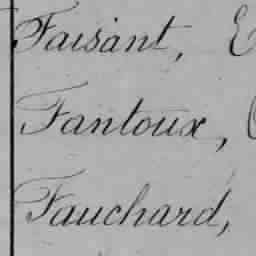 Faisant, E
Fantoux,
Fauchard,